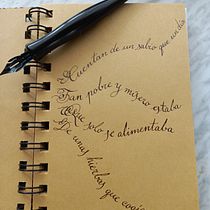 Cuentan de un sabio que un día
Tan pobre y mísero estaba
Que solo se alimentaba
De unas hierbas que cogía